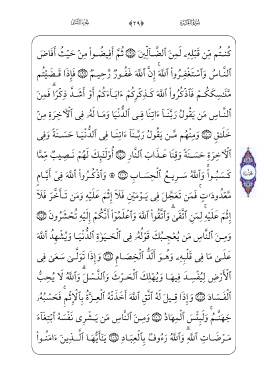 ﴿٢٩﴾
كُنتُم مِّن قَبْلِهِۦ لَمِنَ ٱلضَّآلِّينَ ۝١٩٨ ثُمَّ أَفِيضُوا۟ مِنْ حَيْثُ أَفَاضَ
ٱلنَّاسُ وَٱسْتَغْفِرُوا۟ ٱللَّهَ ۚ إِنَّ ٱللَّهَ غَفُورٌ رَّحِيمٌ ۝١٩٩ فَإِذَا قَضَيْتُم
مَّنَٰسِكَكُمْ فَٱذْكُرُوا۟ ٱللَّهَ كَذِكْرِكُمْ ءَابَآءَكُمْ أَوْ أَشَدَّ ذِكْرًا ۗ فَمِنَ
ٱلنَّاسِ مَن يَقُولُ رَبَّنَآ ءَاتِنَا فِى ٱلدُّنْيَا وَمَا لَهُۥ فِى ٱلْءَاخِرَةِ مِنْ
خَلَٰقٍ ۝٢٠٠ وَمِنْهُم مَّن يَقُولُ رَبَّنَآ ءَاتِنَا فِى ٱلدُّنْيَا حَسَنَةً وَفِى
ٱلْءَاخِرَةِ حَسَنَةً وَقِنَا عَذَابَ ٱلنَّارِ ۝٢٠١ أُو۟لَٰٓئِكَ لَهُمْ نَصِيبٌ مِّمَّا
كَسَبُوا۟ ۚ وَٱللَّهُ سَرِيعُ ٱلْحِسَابِ ۝٢٠٢ ۞ وَٱذْكُرُوا۟ ٱللَّهَ فِىٓ أَيَّامٍ
مَّعْدُودَٰتٍ ۚ فَمَن تَعَجَّلَ فِى يَوْمَيْنِ فَلَآ إِثْمَ عَلَيْهِ وَمَن تَأَخَّرَ فَلَآ
إِثْمَ عَلَيْهِ ۚ لِمَنِ ٱتَّقَىٰ ۗ وَٱتَّقُوا۟ ٱللَّهَ وَٱعْلَمُوٓا۟ أَنَّكُمْ إِلَيْهِ تُحْشَرُونَ ۝٢٠٣
وَمِنَ ٱلنَّاسِ مَن يُعْجِبُكَ قَوْلُهُۥ فِى ٱلْحَيَوٰةِ ٱلدُّنْيَا وَيُشْهِدُ ٱللَّهَ
عَلَىٰ مَا فِى قَلْبِهِۦ وَهُوَ أَلَدُّ ٱلْخِصَامِ ۝٢٠٤ وَإِذَا تَوَلَّىٰ سَعَىٰ فِى
ٱلْأَرْضِ لِيُفْسِدَ فِيهَا وَيُهْلِكَ ٱلْحَرْثَ وَٱلنَّسْلَ ۗ وَٱللَّهُ لَا يُحِبُّ
ٱلْفَسَادَ ۝٢٠٥ وَإِذَا قِيلَ لَهُ ٱتَّقِ ٱللَّهَ أَخَذَتْهُ ٱلْعِزَّةُ بِٱلْإِثْمِ ۚ فَحَسْبُهُۥ
جَهَنَّمُ ۚ وَلَبِئْسَ ٱلْمِهَادُ ۝٢٠٦ وَمِنَ ٱلنَّاسِ مَن يَشْرِى نَفْسَهُ ٱبْتِغَآءَ
مَرْضَاتِ ٱللَّهِ ۗ وَٱللَّهُ رَءُوفٌۢ بِٱلْعِبَادِ ۝٢٠٧ يَٰٓأَيُّهَا ٱلَّذِينَ ءَامَنُوا۟